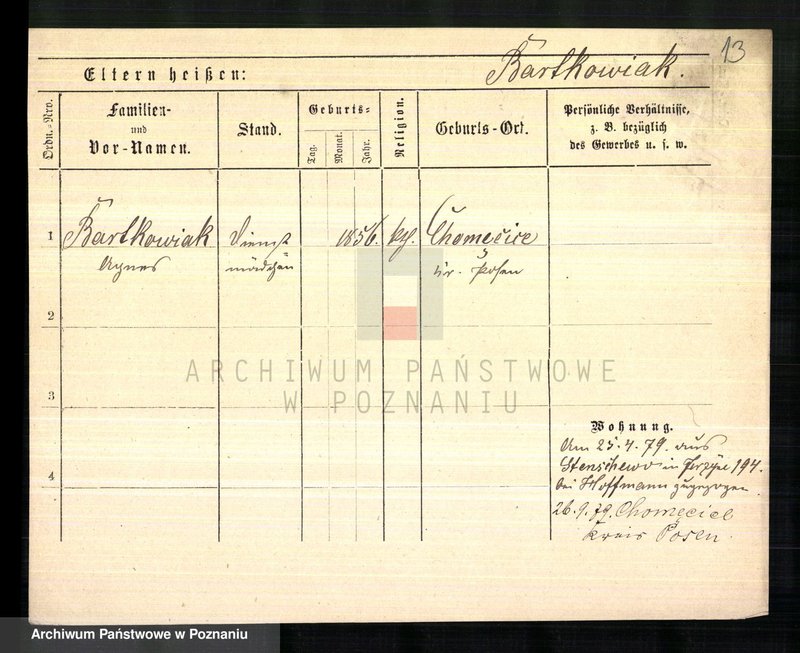 13
Eltern heißen:
Bartkowiak.
Ordn.-Nro.
Familien-
und
Vor-Namen.
Stand.
Geburts-
Tag.
Monat.
Jahr.
Religion.
Geburts-Ort.
Persönliche Verhältnisse,
z. B. bezüglich
des Gewerbes u. s. w.
1
Bartkowiak
Agnes
Dienst
mädchen
1856.
kth.
Chomęcice
Kr. Posen
2
3
4
ARCHIWUM PAŃSTWOWE
W POZNANIU
Wohnung.
Am 25.4.79. aus
Stenschewo in 194.
bei Hoffmann zugezogen.
26.9.79. Chomęcice
Kreis Posen.
Archiwum Państwowe w Poznaniu